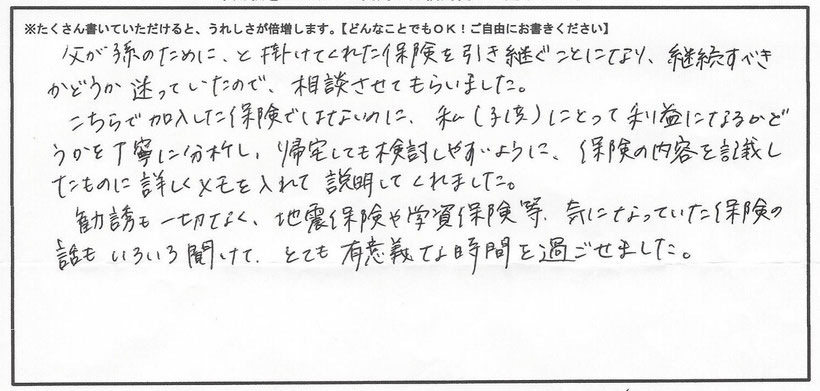 ※たくさん書いていただけると、うれしさが倍増します。【どんなことでもOK！ご自由にお書きください】
父が孫のために、と掛けてくれた保険を引き継ぐことになり、継続すべき
かどうか迷っていたので、相談させてもらいました。
こちらで加入した保険ではないのに、私（子供）にとって利益になるかど
うかを丁寧に分析し、帰宅しても検討しやすいように、保険の内容を記載し
たものに詳しくメモを入れて説明してくれました。
勧誘も一切なく、地震保険や学資保険等、気になっていた保険の
話もいろいろ聞けて、とても有意義な時間を過ごせました。